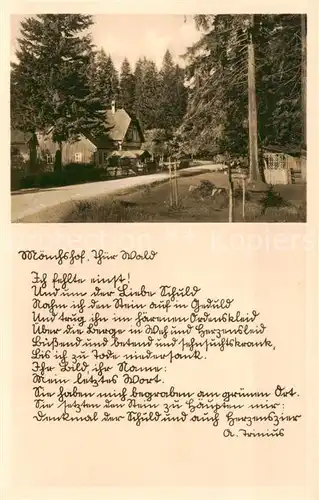 Mönchshof, Thür Wald
Ich fehlte einst!
Und um der Liebe Schuld
Nahm ich den Stein auf in Geduld
Und trug ihn im härenen Ordenskleid
Über die Berge in Weh und Herzensleid
Büßend und betend und sehnsuchtskrank,
Bis ich zu Tode niedersank.
Ihr Bild, ihr Name:
Mein letztes Wort.
Sie haben mich begraben am grünen Ort.
Sie setzten den Stein zu Häupten mir:
Denkmal der Schuld und auch Herzenszier
A. Trinius